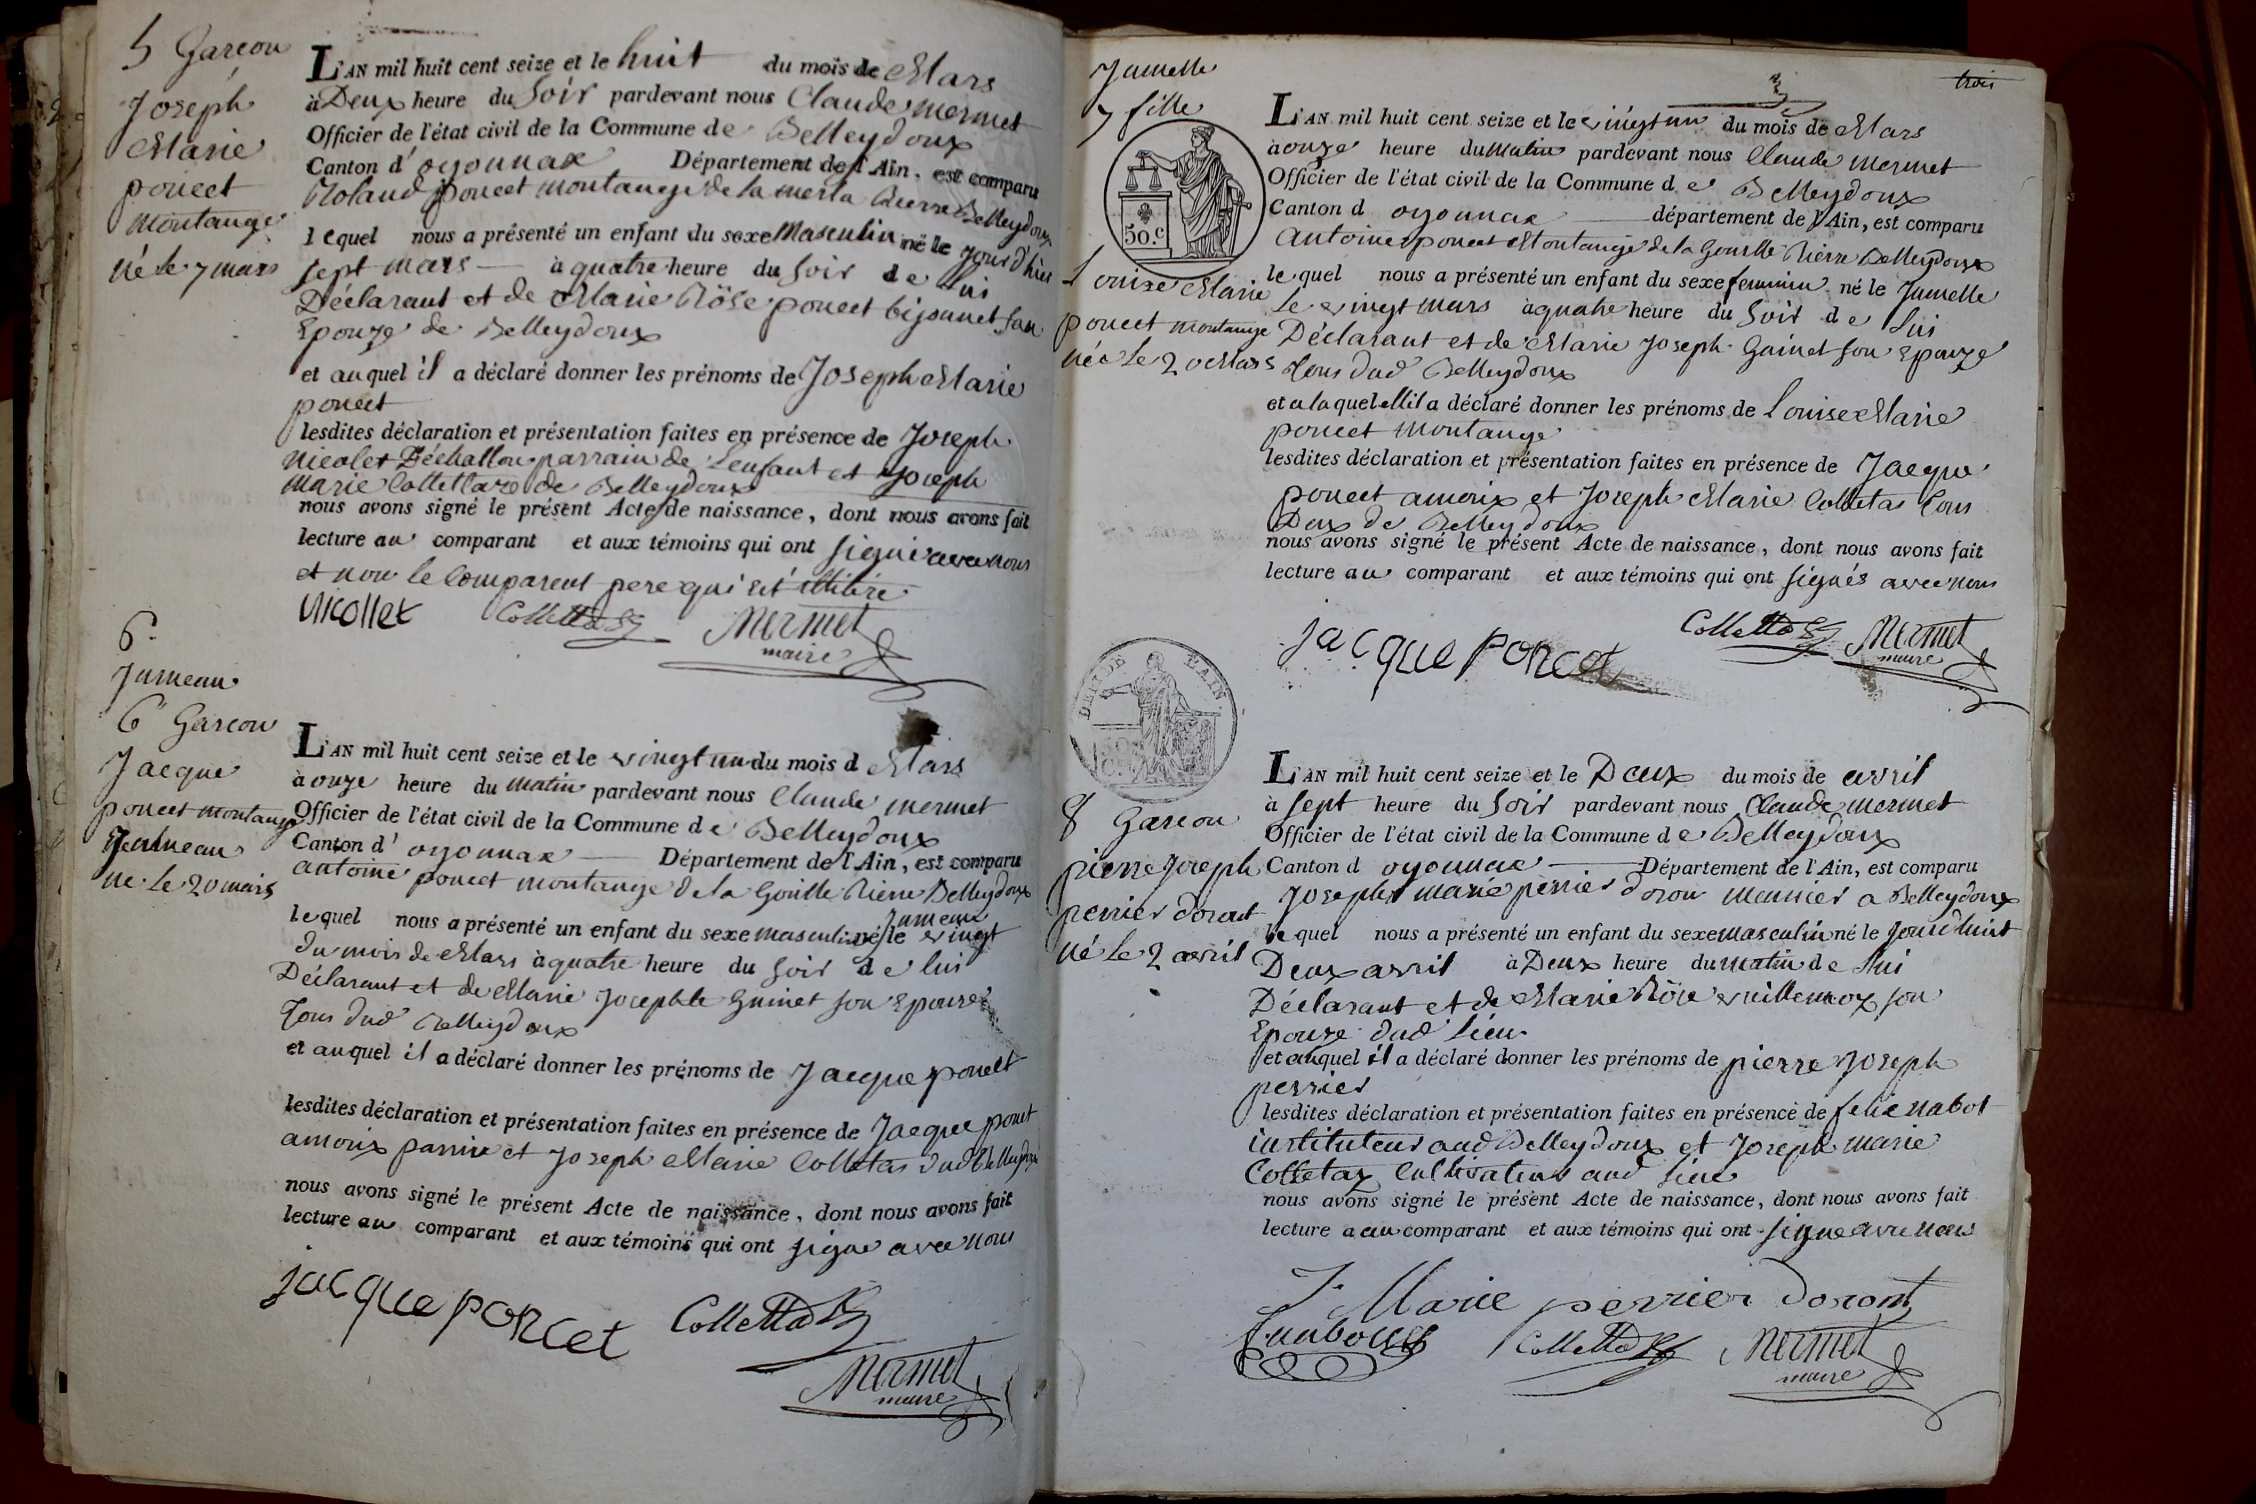 5 Garcon
Joseph
Marie
poncet
montange
né le 7 mars
L'AN mil huit cent seize et le huit du mois de Mars
à Deux heure du Soir pardevant nous Claude Mermet
Officier de l'état civil de la Commune de Belleydoux
Canton d'oyonnax Département de l'Ain, est comparu
Roland poncet montange de la merla Rierre Belleydoux
lequel nous a présenté un enfant du sexe Masculin né le jour d'hier
sept mars à quatre heure du Soir de lui
Déclarant et de Marie Röse poncet bijonnet son
Epouze de Belleydoux
et auquel il a déclaré donner les prénoms de Joseph Marie
poncet
lesdites déclaration et présentation faites en présence de Joseph
nicolet Déchallon parrain de L'enfant et Joseph
marie Collettaz de Belleydoux
nous avons signé le présent Acte de naissance, dont nous avons fait
lecture au comparant et aux témoins qui ont signé avec nous
et non le Comparent pere qui est illitéré
Nicollet Colletta Mermet
maire
6.
Jumeau
6 Garcon
Jacque
poncet montange
Jumeau
né le 20 mars
L'AN mil huit cent seize et le vingt un du mois d Mars
à onze heure du matin pardevant nous Claude mermet
Officier de l'état civil de la Commune de Belleydoux
Canton d'oyonnax Département de l'Ain, est comparu
antoine poncet montange de la Gouille Rierre Belleydoux
lequel nous a présenté un enfant du sexe masculin né le Jumeau vingt
du mois de Mars à quatre heure du Soir de lui
Déclarant et de Marie Josephte Guinet son Epouze
Tous dud Belleydoux
et auquel il a déclaré donner les prénoms de Jacque poncet
lesdites déclaration et présentation faites en présence de Jacque poncet
amorix et Joseph Marie Colletas dud Belleydoux
nous avons signé le présent Acte de naissance, dont nous avons fait
lecture au comparant et aux témoins qui ont signé avec nous
jacque poncet Colletta
Mermet
maire
trois
3
Jumelle
7 fille
50.c
Louise Marie
poncet montange
née le 20 Mars
L'AN mil huit cent seize et le vingt un du mois de Mars
à onze heure du Matin pardevant nous Claude mermet
Officier de l'état civil de la Commune de Belleydoux
Canton d oyonnax département de l'Ain, est comparu
Antoine poncet Montange de la Gouille Rierre Belleydoux
lequel nous a présenté un enfant du sexe feminin né le Jumelle
Le vingt mars à quatre heure du Soir de Lui
Déclarant et de Marie Joseph Guinet son Epouze
Tous dud Belleydoux
et a laquelle il a déclaré donner les prénoms de Louise Marie
poncet montange
lesdites déclaration et présentation faites en présence de Jacque
poncet amorix et Joseph Marie Colletas tous
Deux de Belleydoux
nous avons signé le présent Acte de naissance, dont nous avons fait
lecture au comparant et aux témoins qui ont signés avec nous
jacque poncet Colletta Mermet
maire
DE L'AIN.
8 Garcon
pierre Joseph
perrier doront
né le 2 avril
L'AN mil huit cent seize et le Deux du mois de avril
à sept heure du Soir pardevant nous Claude mermet
Officier de l'état civil de la Commune de Belleydoux
Canton d oyonnax Département de l'Ain, est comparu
Joseph marie perrier doron meunier a Belleydoux
lequel nous a présenté un enfant du sexe masculin né le Jourd'huit
Deux avril à Deux heure du matin de Lui
Déclarant et de Marie Röse vuillermoz son
Epouze dud Lieu
et auquel il a déclaré donner les prénoms de pierre Joseph
perrier
lesdites déclaration et présentation faites en présence de felix nabot
instituteur aud Belleydoux et Joseph marie
Colletaz Cultivateur aud Lieu
nous avons signé le présent Acte de naissance, dont nous avons fait
lecture a au comparant et aux témoins qui ont signé avec nous
J. Marie perrier doront
Colletta Mermet
maire